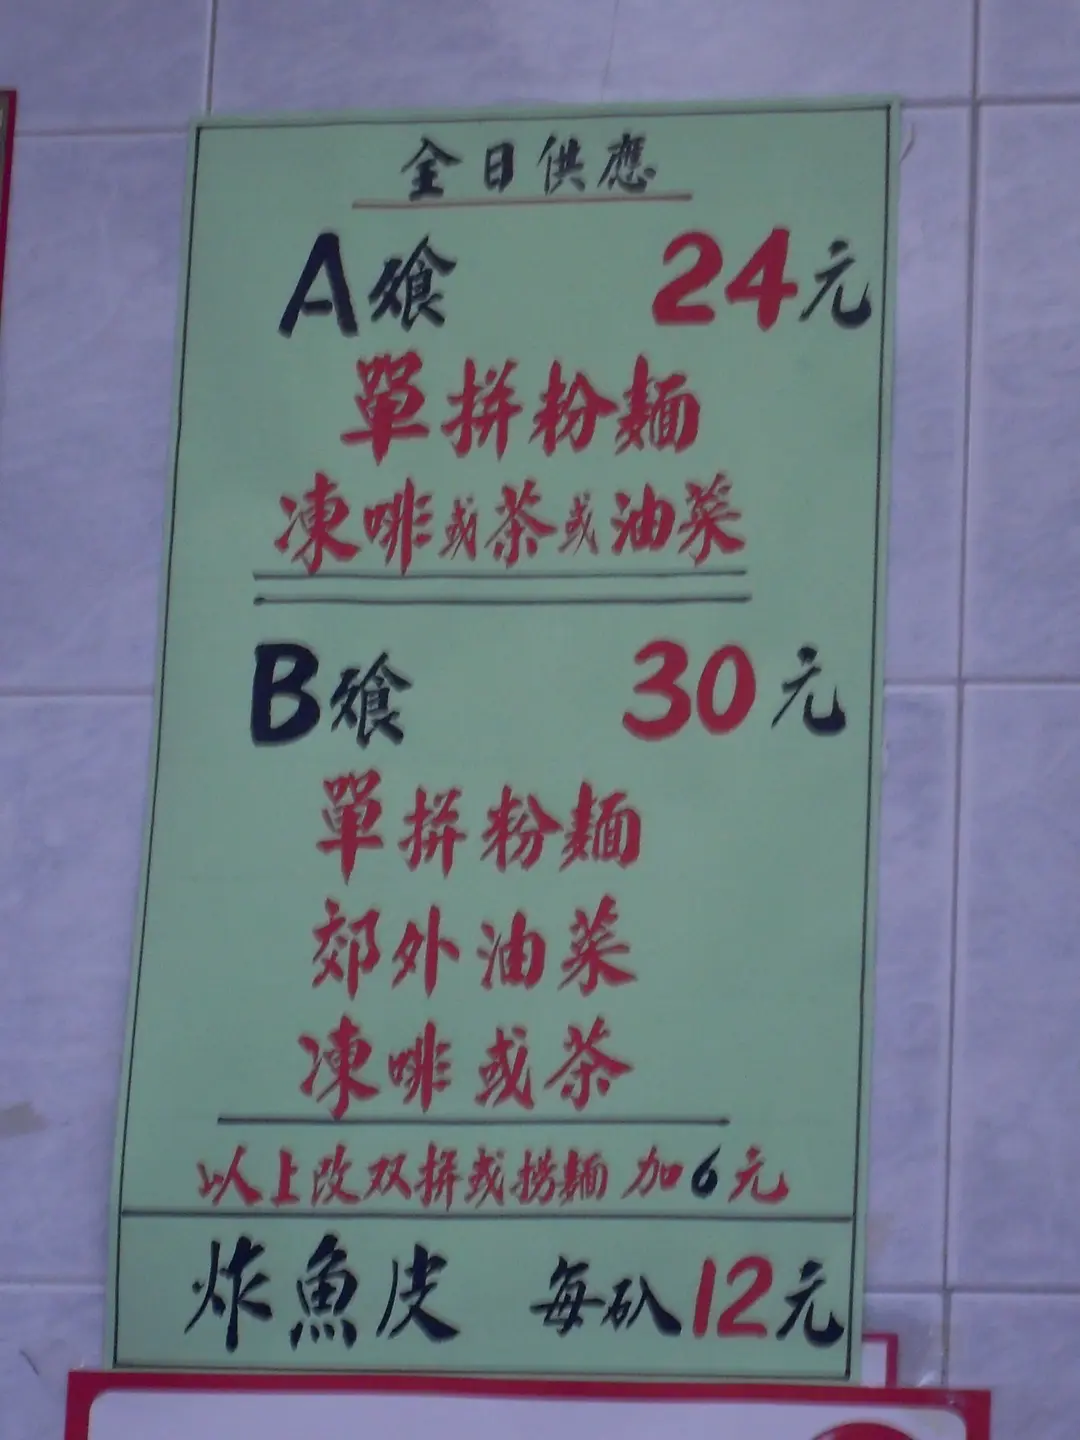 全日供應
A飱 24元
單拼粉麵
凍啡或茶或油菜
B飱 30元
單拼粉麵
郊外油菜
凍啡或茶
以上改双拼或撈麵 加6元
炸魚皮 每砄12元